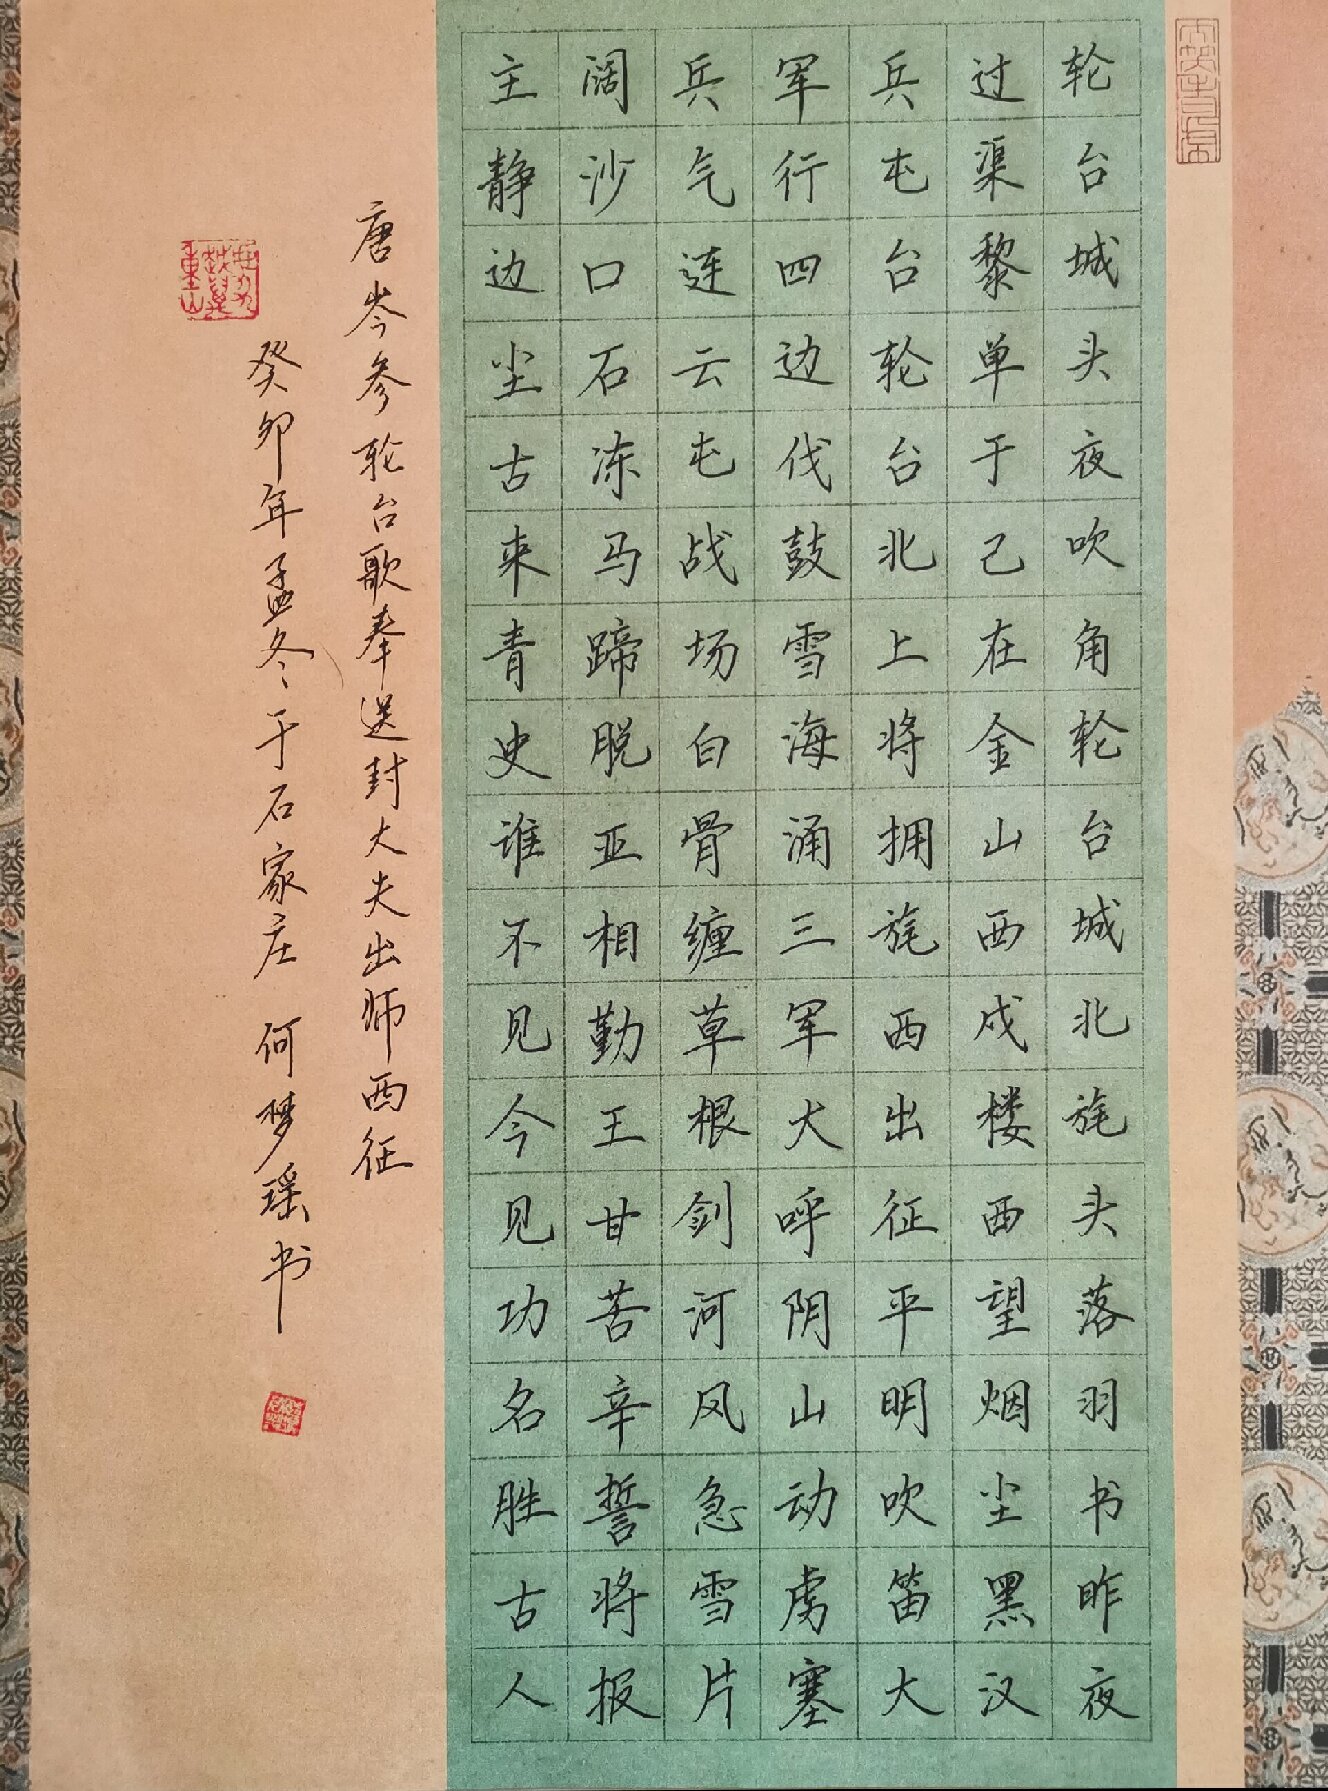 轮台城头夜吹角轮台城北旄头落羽书昨夜
过渠黎单于己在金山西戍楼西望烟尘黑汉
兵屯台轮台北上将拥旄西出征平明吹笛大
军行四边伐鼓雪海涌三军大呼阴山动虏塞
兵气连云屯战场白骨缠草根剑河风急雪片
阔沙口石冻马蹄脱亚相勤王甘苦辛誓将报
主静边尘古来青史谁不见今见功名胜古人
唐岑参轮台歌奉送封大夫出师西征
癸卯年孟冬于石家庄 何梦瑶书